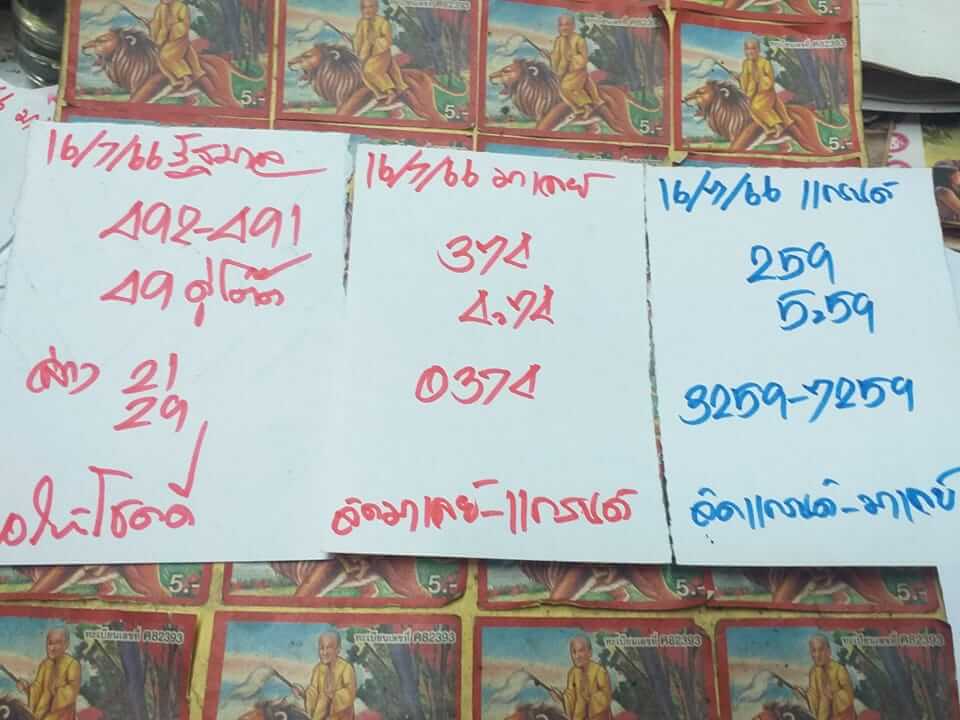 5.-
5.-
ทะเบียนเลขที่ ค82393
5.-
5.-
16/7/66 รัฐบาล
492-491
49 คู่โต๊ด
ล่าง 21
29
ให้โชคดี
16/7/66 มาเลย์
374
4.74
0374
ติดมาเลย์-แกรนด์
16/7/66 แกรนด์
259
5.59
3259-7259
ติดแกรนด์-มาเลย์
5.-
5.-
ทะเบียนเลขที่ ค82393
ทะเบียนเลขที่ ค82393
ทะเบียนเลขที่ ค82393
ทะเบียนเลขที่ ค82393